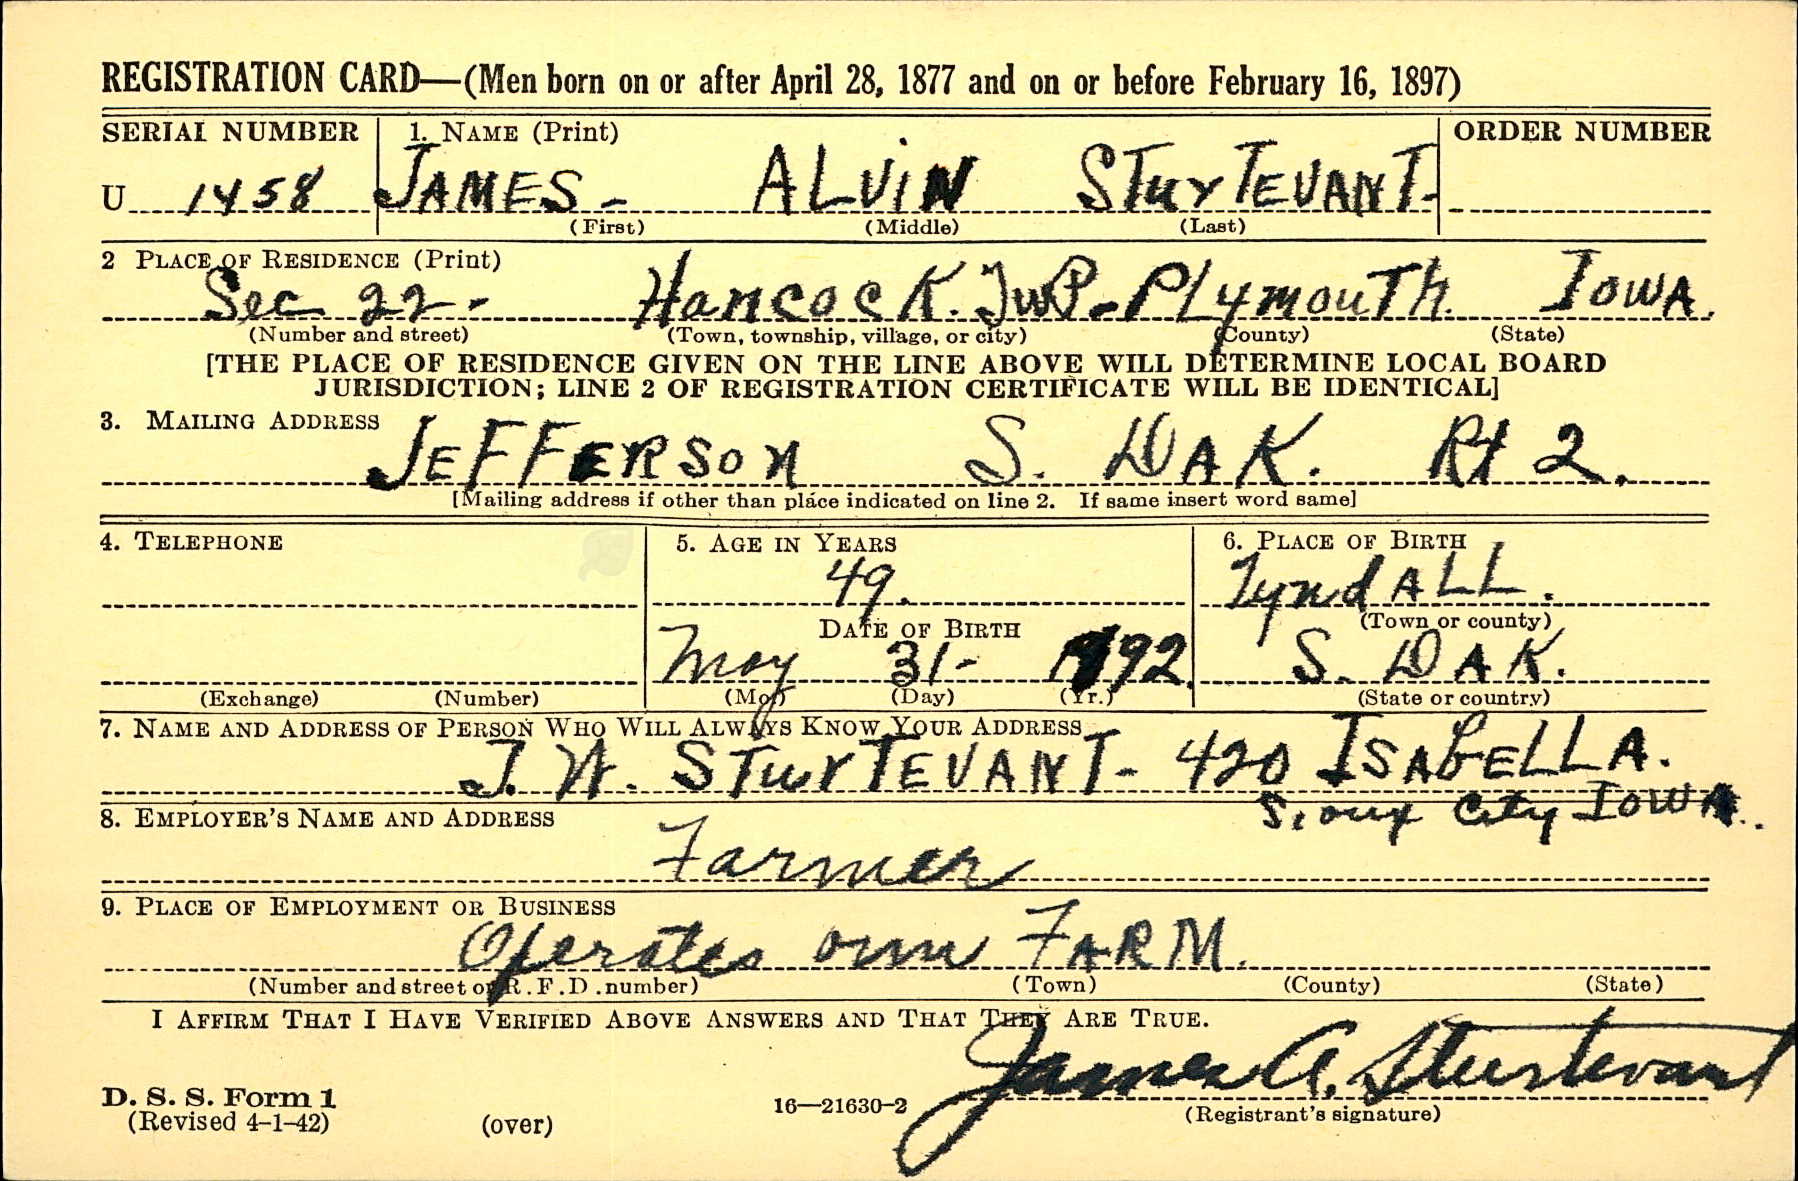 REGISTRATION CARD—(Men born on or after April 28, 1877 and on or before February 16, 1897)
SERIAL NUMBER 1. NAME (Print) ORDER NUMBER
U 1458 JAMES - ALVIN STURTEVANT-
(First) (Middle) (Last)
2 PLACE OF RESIDENCE (Print)
Sec 22 - HANCOCK. TWP - PLYMOUTH. IOWA.
(Number and street) (Town, township, village, or city) (County) (State)
[THE PLACE OF RESIDENCE GIVEN ON THE LINE ABOVE WILL DETERMINE LOCAL BOARD
JURISDICTION; LINE 2 OF REGISTRATION CERTIFICATE WILL BE IDENTICAL]
3. MAILING ADDRESS
JEFFERSON S. DAK. Rt 2.
[Mailing address if other than place indicated on line 2. If same insert word same]
4. TELEPHONE 5. AGE IN YEARS 6. PLACE OF BIRTH
49. TyndALL.
DATE OF BIRTH (Town or county)
May 31- 1892. S. DAK.
(Exchange) (Number) (Mo.) (Day) (Yr.) (State or country)
7. NAME AND ADDRESS OF PERSON WHO WILL ALWAYS KNOW YOUR ADDRESS
J. W. STURTEVANT - 420 ISABELLA.
Sioux City IOWA.
8. EMPLOYER'S NAME AND ADDRESS
Farmer
9. PLACE OF EMPLOYMENT OR BUSINESS
Operates own FARM.
(Number and street or R.F.D. number) (Town) (County) (State)
I AFFIRM THAT I HAVE VERIFIED ABOVE ANSWERS AND THAT THEY ARE TRUE.
James A. Sturtevant
D. S. S. Form 1
(Revised 4-1-42) (over) 16—21630-2 (Registrant's signature)